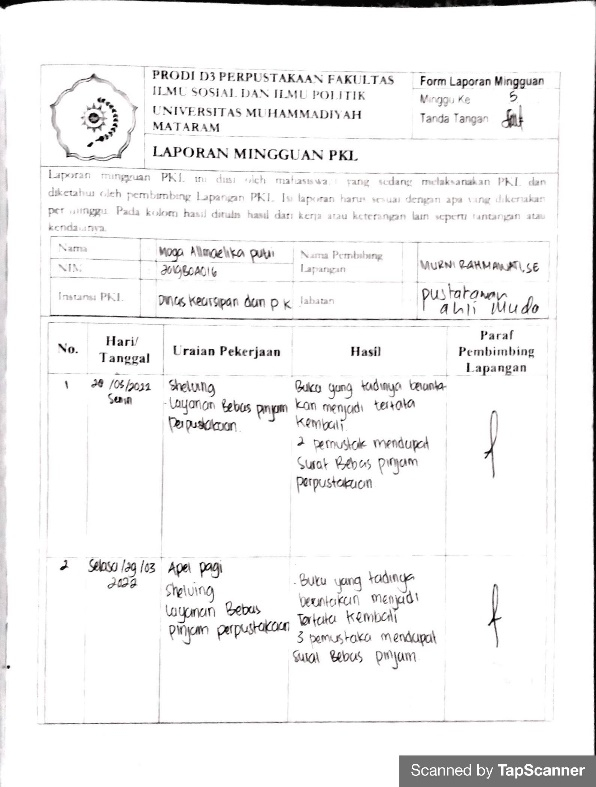 PRODI D3 PERPUSTAKAAN FAKULTAS
ILMU SOSIAL DAN ILMU POLITIK
UNIVERSITAS MUHAMMADIYAH
MATARAM
LAPORAN MINGGUAN PKL
Form Laporan Mingguan
Minggu Ke 5
Tanda Tangan
Laporan mingguan PKL ini diisi oleh mahasiswa/i yang sedang melaksanakan PKL dan
diketahui oleh pembimbing Lapangan PKL. Isi laporan harus sesuai dengan apa yang dikerjakan
per minggu. Pada kolom hasil ditulis hasil dari kerja atau keterangan lain seperti tantangan atau
kendalanya.
Nama
NIM
putri
Nama Pembibing
Lapangan
MURNI RAHMAWATI, SE
Instansi PKL
Dinas Kearsipan dan P K
Jabatan
pustakawan
ahli Muda
No.
Hari/
Tanggal
Uraian Pekerjaan
Hasil
Paraf
Pembimbing
Lapangan
1
Senin
Shelving
- Layanan Bebas pinjam
perpustakaan.
Buku yang tadinya beranta-
kan menjadi tertata
kembali
2 pemustak mendapat
Surat Bebas pinjam
perpustakaan
2
Selasa/29/03
2022
Apel pagi
Shelving
Layanan Bebas
pinjam perpustakaan
- Buku yang tadinya
berantakan menjadi
Tertata Kembali
3 pemustaka mendapat
Surat Bebas pinjam
Scanned by TapScanner